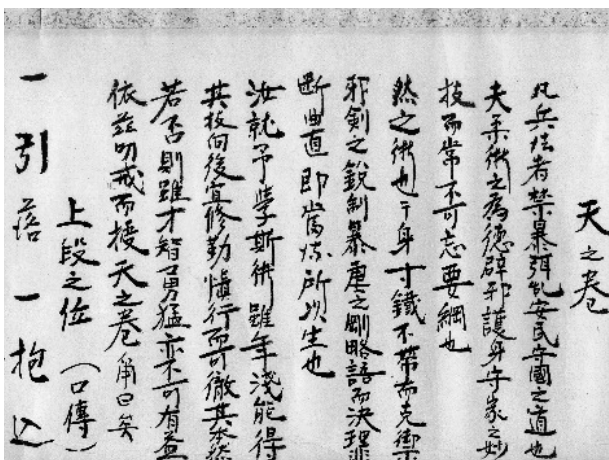 天之巻
凡兵法者禁暴弭乱安民守國之道也
夫柔術之為徳辟邪護身守家之妙
技而常不可忘要綱也
然之術也于身寸鐵不帯而克御
邪剣之鋭制暴虐之剛略語而決理非
断曲直即當流所以生也
汝就予學斯術雖年淺能得
其技向後宜修勤慎行而可徹其
若否則雖才智勇猛亦不可有益
依茲叨戒而授天之巻
上段之位（口傳）
一引落一抱込